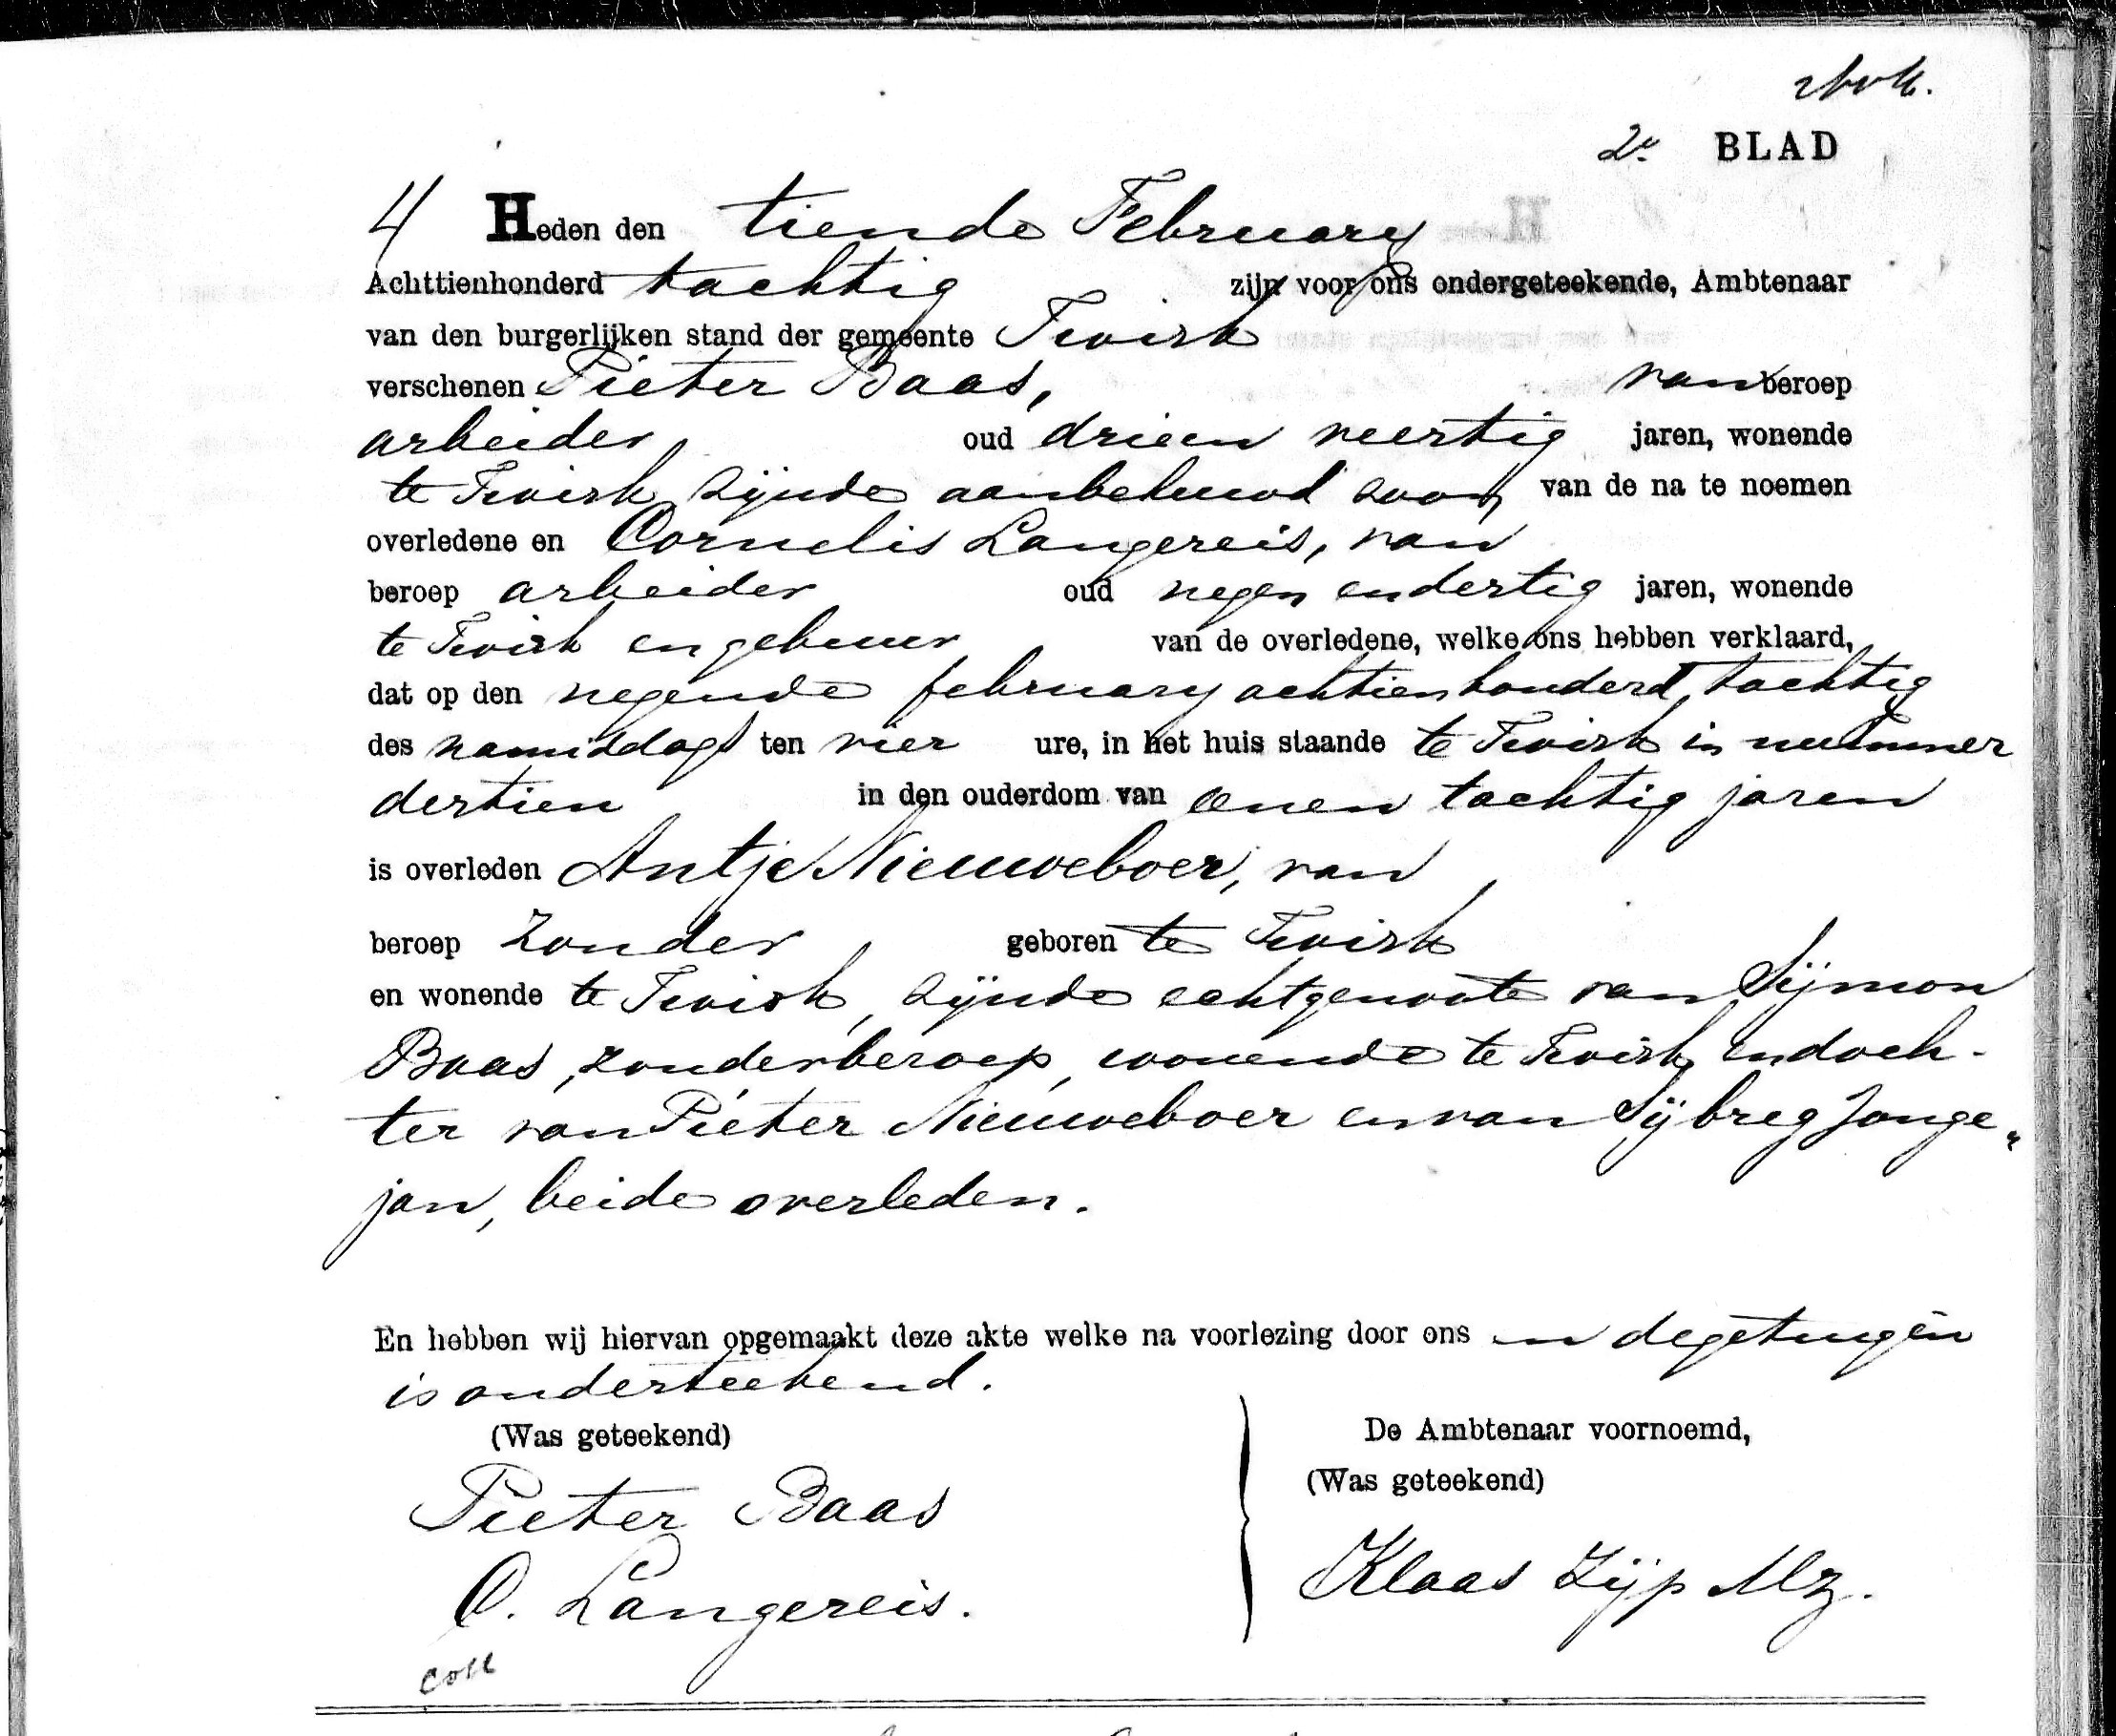 2e BLAD
4 Heden den tiende February
Achttienhonderd tachtig zijn voor ons ondergeteekende, Ambtenaar
van den burgerlijken stand der gemeente Twisk
verschenen Pieter Baas, van beroep
arbeider, oud drieen veertig jaren, wonende
te Twisk, zijnde aanbehuwd zoon van de na te noemen
overledene en Cornelis Langereis, van
beroep arbeider oud negen en dertig jaren, wonende
te Twisk en gebuur van de overledene, welke ons hebben verklaard,
dat op den negende february achtienhonderd tachtig
des namiddags ten vier ure, in het huis staande te Twisk in nummer
dertien in den ouderdom van eenen tachtig jaren
is overleden Antje Nieuweboer, van
beroep zonder, geboren te Twisk
en wonende te Twisk, zijnde echtgenoote van Sijmon
Baas, zonder beroep, wonende te Twisk, en doch-
ter van Pieter Nieuweboer en van Sijbreg Jonge„
jan, beide overleden.
En hebben wij hiervan opgemaakt deze akte welke na voorlezing door ons en de getuigen
is onderteekend.
(Was geteekend)
Pieter Baas
C. Langereis.
De Ambtenaar voornoemd,
(Was geteekend)
Klaas Zijp Mz.
coll